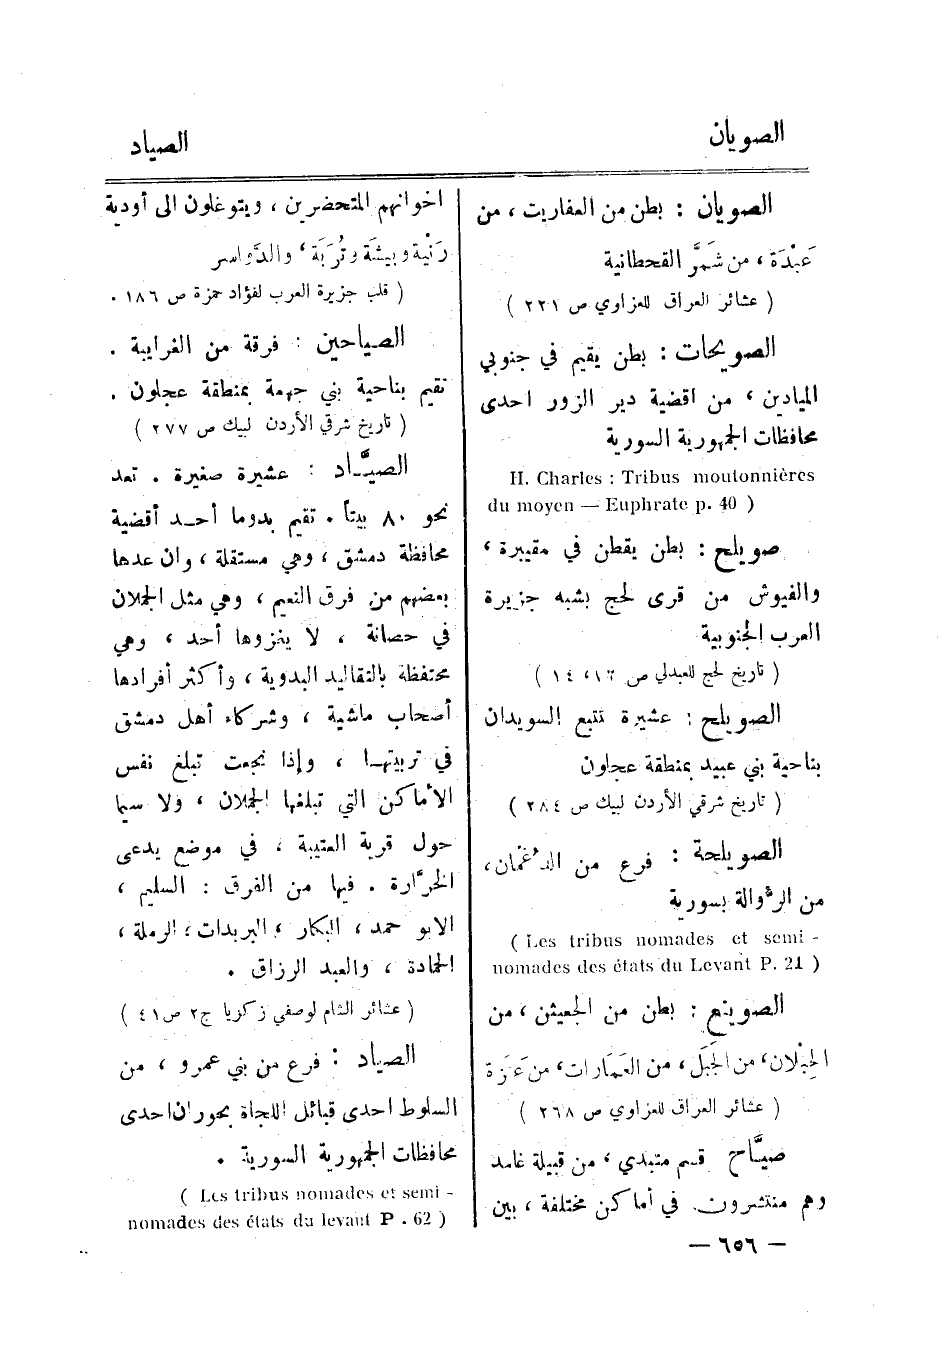 الصويان
الصياد
الصويان : بطن من العفاريت ، من
عَبْدَة ، من شَمَّر القحطانية
( عشائر العراق للعزاوي ص ٢٢١ )
الصويحات : بطن يقيم في جنوبي
الميادين ، من اقضية دير الزور احدى
محافظات الجمهورية السورية
H. Charles : Tribus moutonnières
du moyen — Euphrate p. 40 )
صويلح : بطن يقطن في مقيبرة ،
والفيوش من قرى لحج بشبه جزيرة
العرب الجنوبية
( تاريخ لحج للعبدلي ص ١٢، ١٤ )
الصويلح : عشيرة تتبع السويدان
بناحية بني عبيد بمنطقة عجلون
( تاريخ شرقي الأردن لبيك ص ٢٨٤ )
الصويلحة : فرع من الدغمان،
من الرُّوالة بسورية
( Les tribus nomades et semi -
nomades des états du Levant P. 21 )
الصوينع : بطن من الجعيثن ، من
الحِبْلان، من الجَبَل ، من العَمَارات، من عَنَزة
( عشائر العراق للعزاوي ص ٢٦٨ )
صيَّاح قسم متبدي ، من قبيلة غامد
وهم منتشرون. في أماكن مختلفة ، بين
اخوانهم المتحضرين ، ويتوغلون الى أودية
رَنْيَة وبيشَة وتُرَبَة ، والدَّواسر
( قلب جزيرة العرب لفؤاد حمزة ص ١٨٦ .
الصياحين : فرقة من الغرايبة .
تقيم بناحية بني جهمة بمنطقة عجلون .
( تاريخ شرقي الأردن لبيك ص ٢٧٧ )
الصيَّاد : عشيرة صغيرة . تعد
نحو ٨٠ بيتاً . تقيم بدوما أحد أقضية
محافظة دمشق ، وهي مستقلة ، وان عدها
بعضهم من فرق النعيم ، وهي مثل الجملان
في حصانة ، لا يغزوها أحد ، وهي
محتفظة بالتقاليد البدوية ، وأكثر أفرادها
أصحاب ماشية ، وشركاء أهل دمشق
في تربيتها ، وإذا نجعت تبلغ نفس
الأماكن التي تبلغها الجملان ، ولا سيما
حول قرية العتيبة ، في موضع يدعى
الخرَّارة . فيها من الفرق : السليم ،
الابو حمد ، البكار ، البريدات ، الرملة ،
الحمادة ، والعبد الرزاق .
( عشائر الشام لوصفي زكريا ج٢ ص٤١ )
الصياد : فرع من بني عمرو ، من
السلوط احدى قبائل اللجاة بحوران احدى
محافظات الجمهورية السورية .
( Les tribus nomades et semi -
nomades des états du levant P . 62 )
— ٦٥٦ —